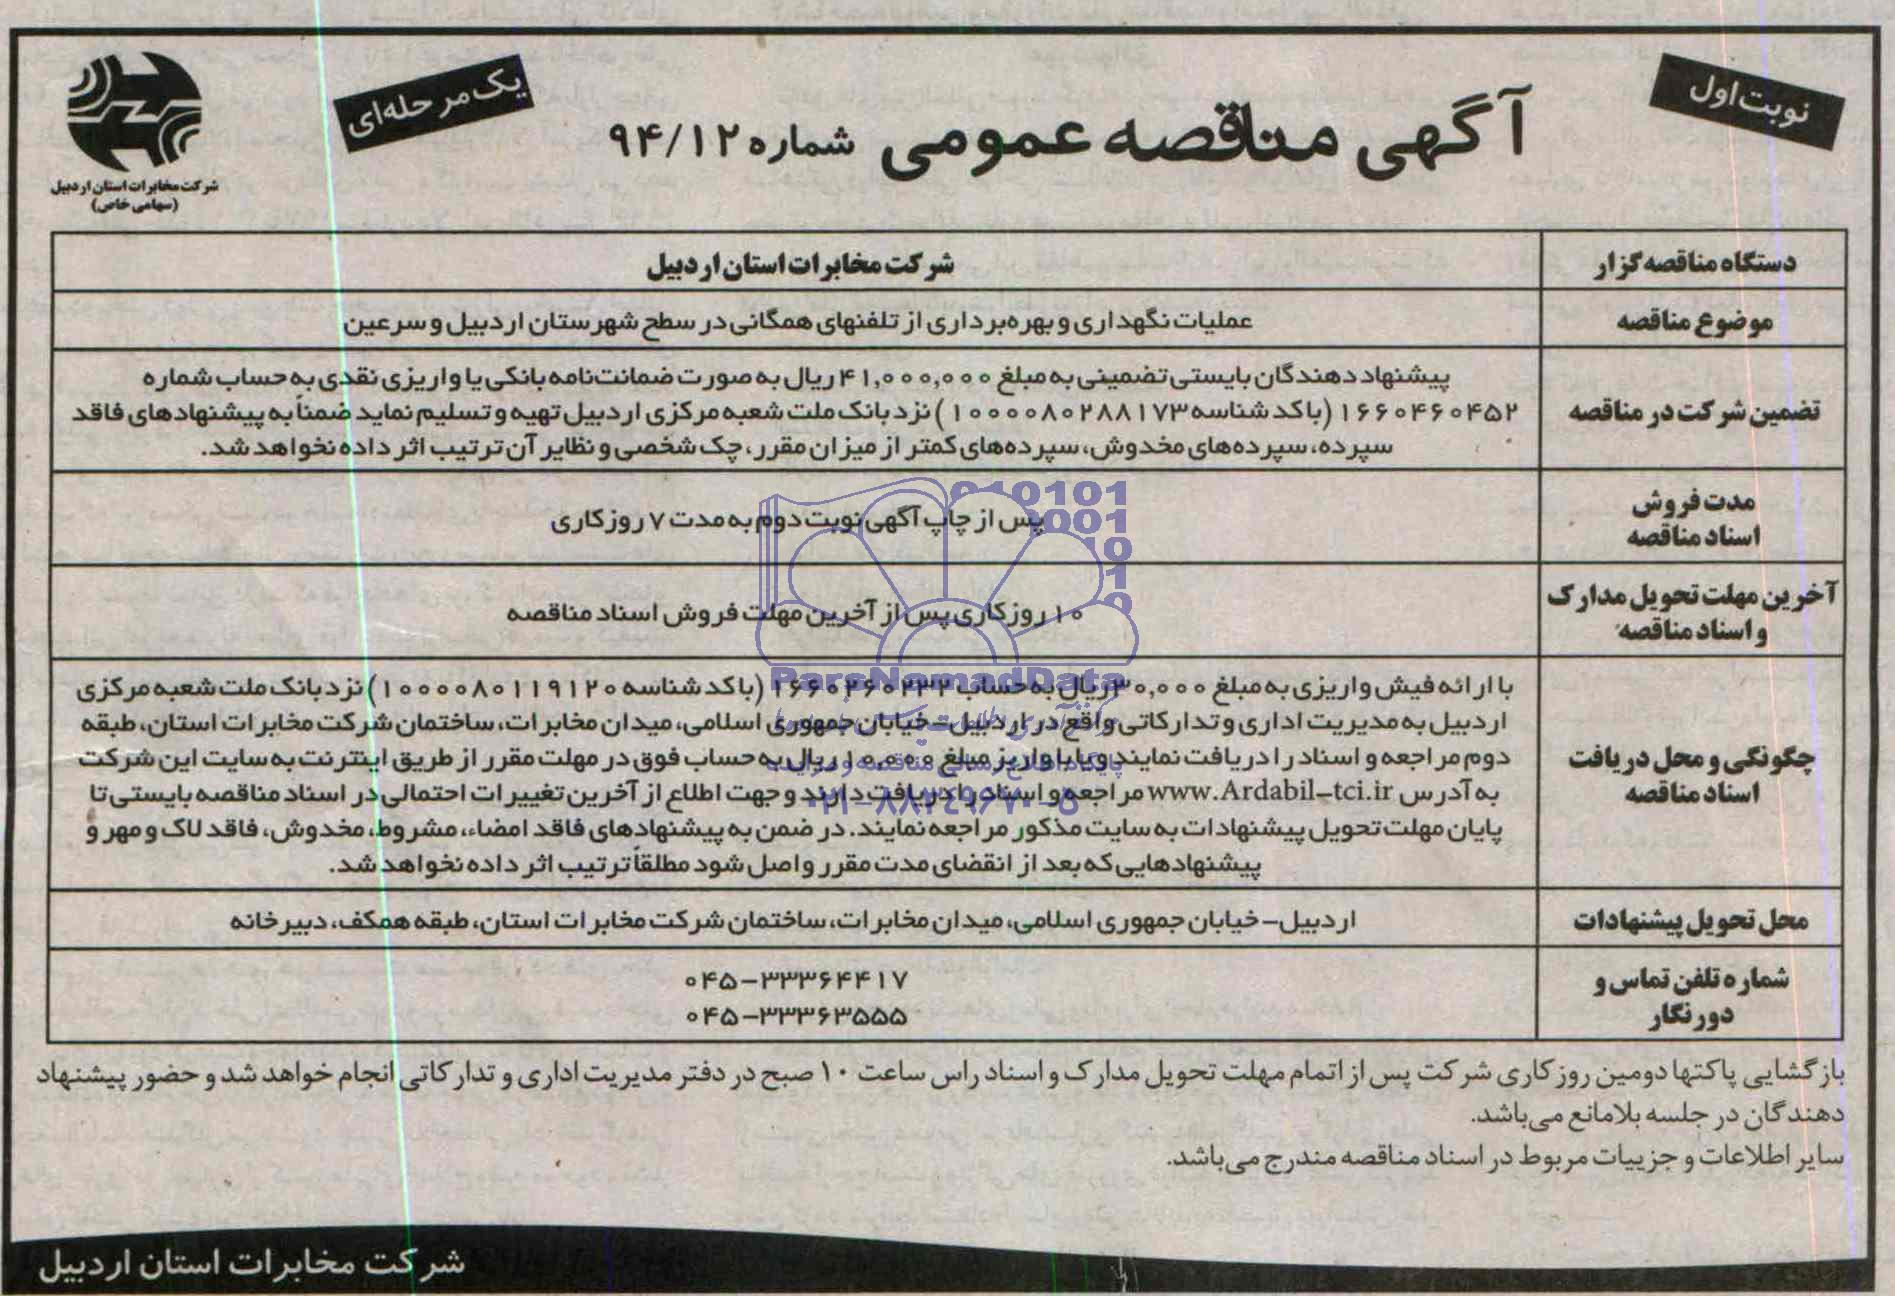 نوبت اول
آگهی مناقصه عمومی شماره ۹۴/۱۲
یک مرحله‌ای
شرکت مخابرات استان اردبیل
(سهامی خاص)
دستگاه مناقصه گزار
شرکت مخابرات استان اردبیل
موضوع مناقصه
عملیات نگهداری و بهره‌برداری از تلفنهای همگانی در سطح شهرستان اردبیل و سرعین
تضمین شرکت در مناقصه
پیشنهاد دهندگان بایستی تضمینی به مبلغ ۴۱,۰۰۰,۰۰۰ ریال به صورت ضمانت‌نامه بانکی یا واریزی نقدی به حساب شماره
۱۶۶۰۴۶۰۴۵۲ (با کد شناسه ۱۰۰۰۰۸۰۲۸۸۱۷۳) نزد بانک ملت شعبه مرکزی اردبیل تهیه و تسلیم نماید ضمناً به پیشنهادهای فاقد
سپرده، سپرده‌های مخدوش، سپرده‌های کمتر از میزان مقرر، چک شخصی و نظایر آن ترتیب اثر داده نخواهد شد.
مدت فروش
اسناد مناقصه
پس از چاپ آگهی نوبت دوم به مدت ۷ روز کاری
آخرین مهلت تحویل مدارک
و اسناد مناقصه
۱۰ روز کاری پس از آخرین مهلت فروش اسناد مناقصه
چگونگی و محل دریافت
اسناد مناقصه
با ارائه فیش واریزی به مبلغ ۳۰,۰۰۰ ریال به حساب ۱۶۶۰۲۶۰۲۳۲ (با کد شناسه ۱۰۰۰۰۸۰۱۱۹۱۲۰) نزد بانک ملت شعبه مرکزی
اردبیل به مدیریت اداری و تدارکاتی واقع در اردبیل – خیابان جمهوری اسلامی، میدان مخابرات، ساختمان شرکت مخابرات استان، طبقه
دوم مراجعه و اسناد را دریافت نمایند و یا با واریز مبلغ ۱۰,۰۰۰ ریال به حساب فوق در مهلت مقرر از طریق اینترنت به سایت این شرکت
به آدرس www.Ardabil-tci.ir مراجعه و اسناد را دریافت دارند و جهت اطلاع از آخرین تغییرات احتمالی در اسناد مناقصه بایستی تا
پایان مهلت تحویل پیشنهادات به سایت مذکور مراجعه نمایند. در ضمن به پیشنهادهای فاقد امضاء، مشروط، مخدوش، فاقد لاک و مهر و
پیشنهادهایی که بعد از انقضای مدت مقرر واصل شود مطلقاً ترتیب اثر داده نخواهد شد.
محل تحویل پیشنهادات
اردبیل – خیابان جمهوری اسلامی، میدان مخابرات، ساختمان شرکت مخابرات استان، طبقه همکف، دبیرخانه
شماره تلفن تماس و
دورنگار
۰۴۵–۳۳۳۶۴۴۱۷
۰۴۵–۳۳۳۶۳۵۵۵
بازگشایی پاکتها دومین روز کاری شرکت پس از اتمام مهلت تحویل مدارک و اسناد راس ساعت ۱۰ صبح در دفتر مدیریت اداری و تدارکاتی انجام خواهد شد و حضور پیشنهاد
دهندگان در جلسه بلامانع می‌باشد.
سایر اطلاعات و جزییات مربوط در اسناد مناقصه مندرج می‌باشد.
شرکت مخابرات استان اردبیل
ParsNamadData
۰۲۱–۸۸۳۴۹۶۷۰–۵